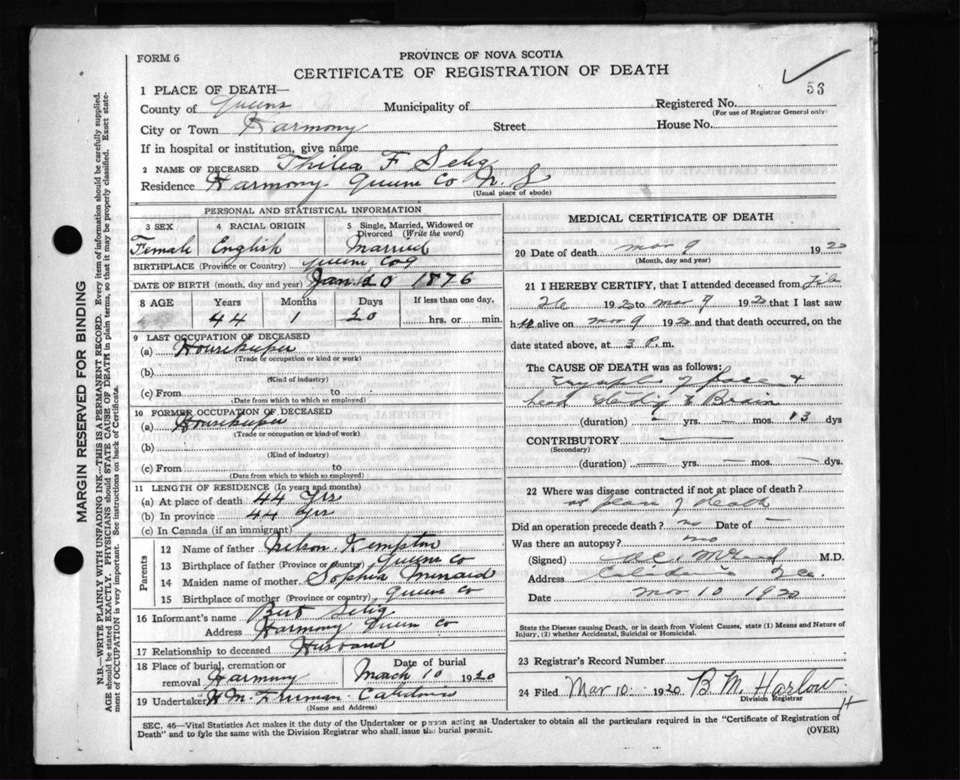 FORM 6
PROVINCE OF NOVA SCOTIA
CERTIFICATE OF REGISTRATION OF DEATH
53
1 PLACE OF DEATH—
County of Queens Municipality of Registered No.
(For use of Registrar General only)
City or Town Harmony Street House No.
If in hospital or institution, give name
2 NAME OF DECEASED F Selig
Residence Harmony Queens Co N. S
(Usual place of abode)
PERSONAL AND STATISTICAL INFORMATION
3 SEX 4 RACIAL ORIGIN 5 Single, Married, Widowed or Divorced (Write the word)
Female English Married
BIRTHPLACE (Province or Country) Queens Co
DATE OF BIRTH (month, day and year) Jan 1876
8 AGE Years Months Days If less than one day,
44 1 20 hrs. or min.
9 LAST OCCUPATION OF DECEASED
(a) Housekeeper
(Trade or occupation or kind or work)
(b)
(Kind of industry)
(c) From to
(Date from which to which so employed)
10 FORMER OCCUPATION OF DECEASED
(a) Housekeeper
(Trade or occupation or kind of work)
(b)
(Kind of industry)
(c) From to
(Date from which to which so employed)
11 LENGTH OF RESIDENCE (In years and months)
(a) At place of death 44 Yrs
(b) In province 44 Yrs
(c) In Canada (if an immigrant)
Parents
12 Name of father Kempton
13 Birthplace of father (Province or country) Queens Co
14 Maiden name of mother Sophia
15 Birthplace of mother (Province or country) Queens Co
16 Informant's name Burt Selig
Address Harmony Queens Co
17 Relationship to deceased Husband
18 Place of burial, cremation or removal Harmony Date of burial March 10 1920
19 Undertaker Freeman Caledonia
(Name and Address)
MEDICAL CERTIFICATE OF DEATH
20 Date of death Mar 9 1920
(Month, day and year)
21 I HEREBY CERTIFY, that I attended deceased from Feb
26 1920 to Mar 9 1920 that I last saw
h er alive on Mar 9 1920 and that death occurred, on the
date stated above, at 3 P. m.
The CAUSE OF DEATH was as follows:
of face +
Brain
(duration) — yrs. — mos. 13 dys
CONTRIBUTORY —
(Secondary)
(duration) — yrs. — mos. — dys.
22 Where was disease contracted if not at place of death?
at place of death
Did an operation precede death? no Date of —
Was there an autopsy? no
(Signed) M.D.
Address Caledonia Q Co.
Date Mar 10 1920
State the Disease causing Death, or in death from Violent Causes, state (1) Means and Nature of
Injury, (2) whether Accidental, Suicidal or Homicidal.
23 Registrar's Record Number
24 Filed Mar 10 1920 B. M. Harlow
Division Registrar
SEC. 46—Vital Statistics Act makes it the duty of the Undertaker or person acting as Undertaker to obtain all the particulars required in the "Certificate of Registration of
Death" and to fyle the same with the Division Registrar who shall issue the burial permit. (OVER)
MARGIN RESERVED FOR BINDING
N.B.—WRITE PLAINLY WITH UNFADING INK—THIS IS A PERMANENT RECORD. Every item of information should be carefully supplied.
AGE should be stated EXACTLY. PHYSICIANS should STATE CAUSE OF DEATH in plain terms, so that it may be properly classified. Exact state-
ment of OCCUPATION is very important. See instructions on back of Certificate.